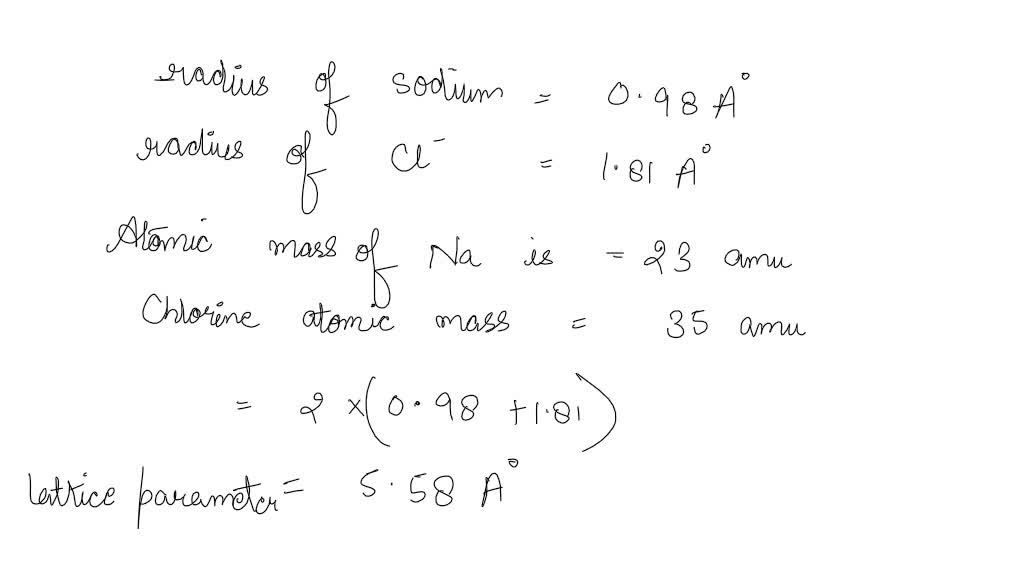 radius of sodium = 0.98 A°
radius of Cl⁻ = 1.81 A°
Atomic mass of Na is = 23 amu
Chlorine atomic mass = 35 amu
= 2 × (0.98 + 1.81)
lattice parameter = 5.58 A°